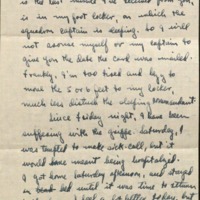 is the last number I've received from you,
is in my foot locker, on which the
squadron captain is sleeping. So I will
not arouse myself or my captain to
give you the date the card was mailed.
Frankly, I'm too tired and lazy to
move the 5 or 6 feet to my locker,
much less disturb the sleeping commandant.
Since Friday night, I have been
suffering with the grippe. Saturday, I
was tempted to make sick-call, but it
would have meant being hospitalized.
I got home Saturday afternoon, and stayed
in bed until it was time to return
I feel a lot better today, but